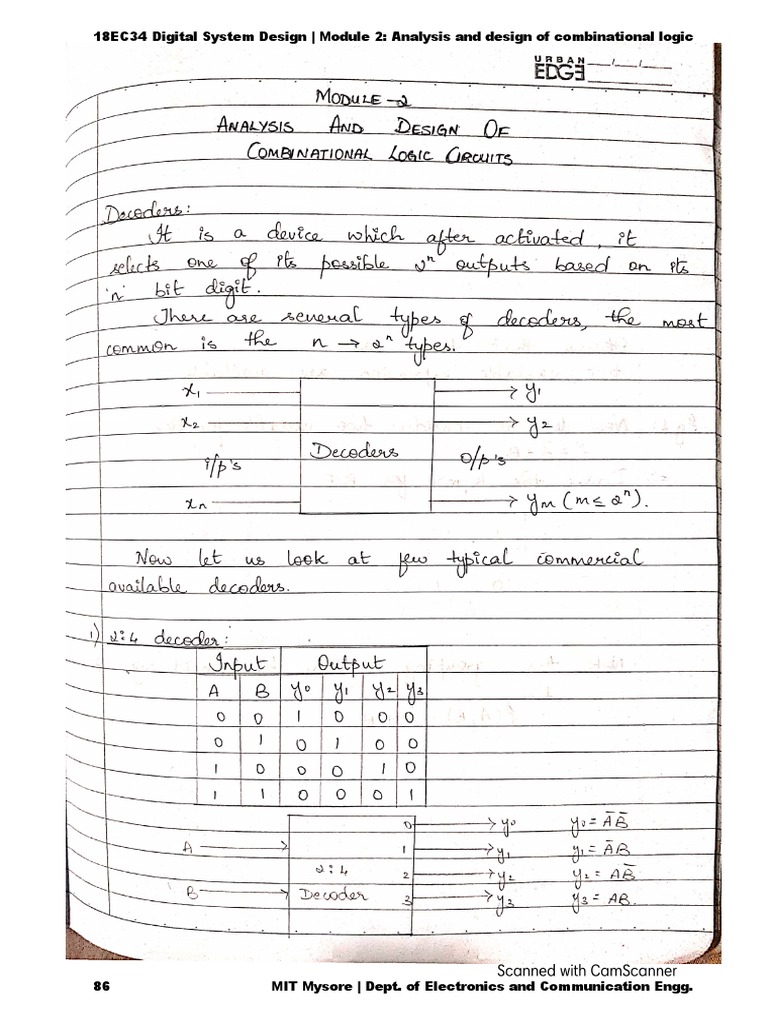 18EC34 Digital System Design | Module 2: Analysis and design of combinational logic
URBAN
EDGE __/__/__
MODULE-2
ANALYSIS AND DESIGN OF
COMBINATIONAL LOGIC CIRCUITS
Decoders:
It is a device which after activated, it
selects one of its possible 2ⁿ outputs based on its
'n' bit digit.
There are several types of decoders, the most
common is the n → 2ⁿ types.
x₁ → y₁
x₂ → y₂
i/p's Decoders o/p's
xₙ → yₘ (m ≤ 2ⁿ).
Now let us look at few typical commercial
available decoders.
1) 2:4 decoder:
Input Output
A B y₀ y₁ y₂ y₃
0 0 1 0 0 0
0 1 0 1 0 0
1 0 0 0 1 0
1 1 0 0 0 1
0 → y₀ y₀ = A̅B̅
A → 1 → y₁ y₁ = A̅B
2:4 2 → y₂ y₂ = AB̅
B → Decoder 3 → y₃ y₃ = AB.
Scanned with CamScanner
86 MIT Mysore | Dept. of Electronics and Communication Engg.